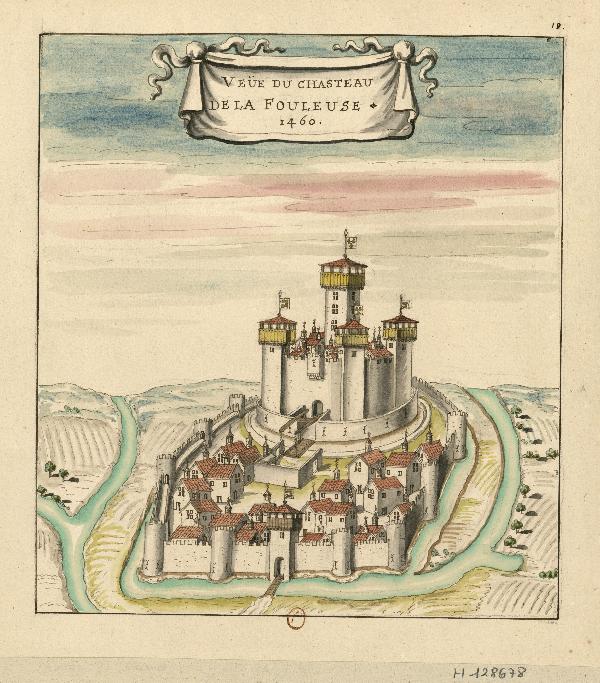 19.
VEÜE DU CHASTEAU
DE LA FOULEUSE
1460.
H-128678